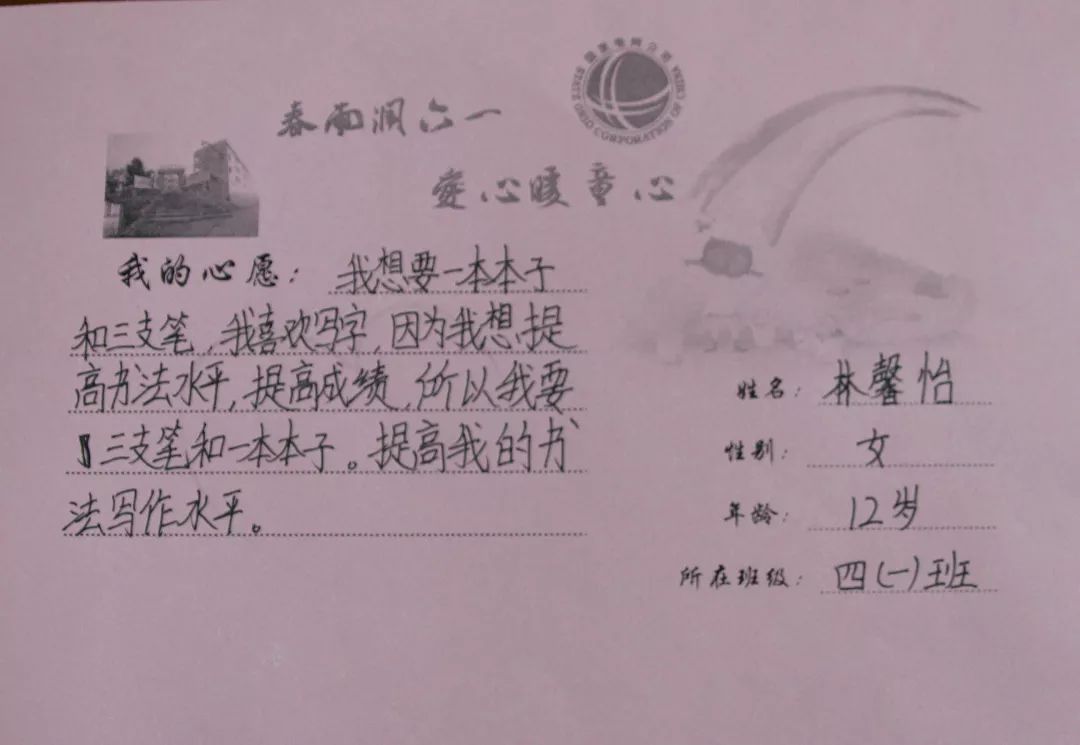 春雨润六一
爱心暖童心
国家电网公司
STATE GRID CORPORATION OF CHINA
我的心愿：我想要一本本子
和三支笔，我喜欢写字，因为我想提
高书法水平，提高成绩，所以我要
三支笔和一本本子。提高我的书
法写作水平。
姓名：林馨怡
性别：女
年龄：12岁
所在班级：四(一)班